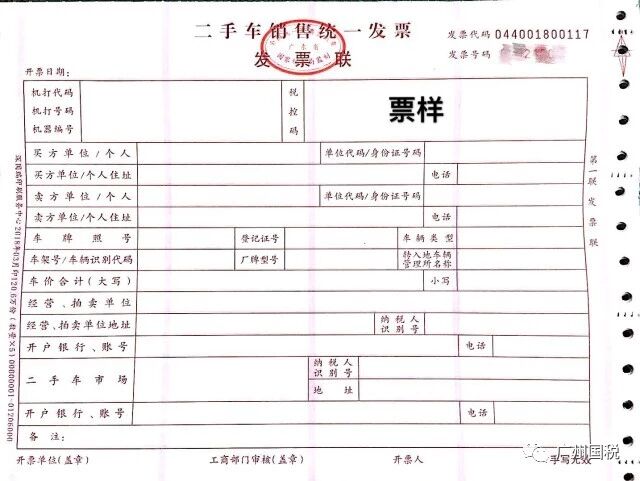 二手车销售统一发票
发票联
广东省
发票代码 044001800117
发票号码
开票日期：
机打代码
机打号码
机器编号
税控码
票样
买方单位/个人 单位代码/身份证号码
买方单位/个人住址 电话
卖方单位/个人 单位代码/身份证号码
卖方单位/个人住址 电话
车牌照号 登记证号 车辆类型
车架号/车辆识别代码 厂牌型号 转入地车辆管理所名称
车价合计(大写) 小写
经营、拍卖单位
经营、拍卖单位地址 纳税人识别号
开户银行、账号 电话
二手车市场 纳税人识别号
地址
开户银行、账号 电话
备注：
开票单位(盖章) 工商部门审核(盖章) 开票人 手写无效
第一联 发票联
广州国税